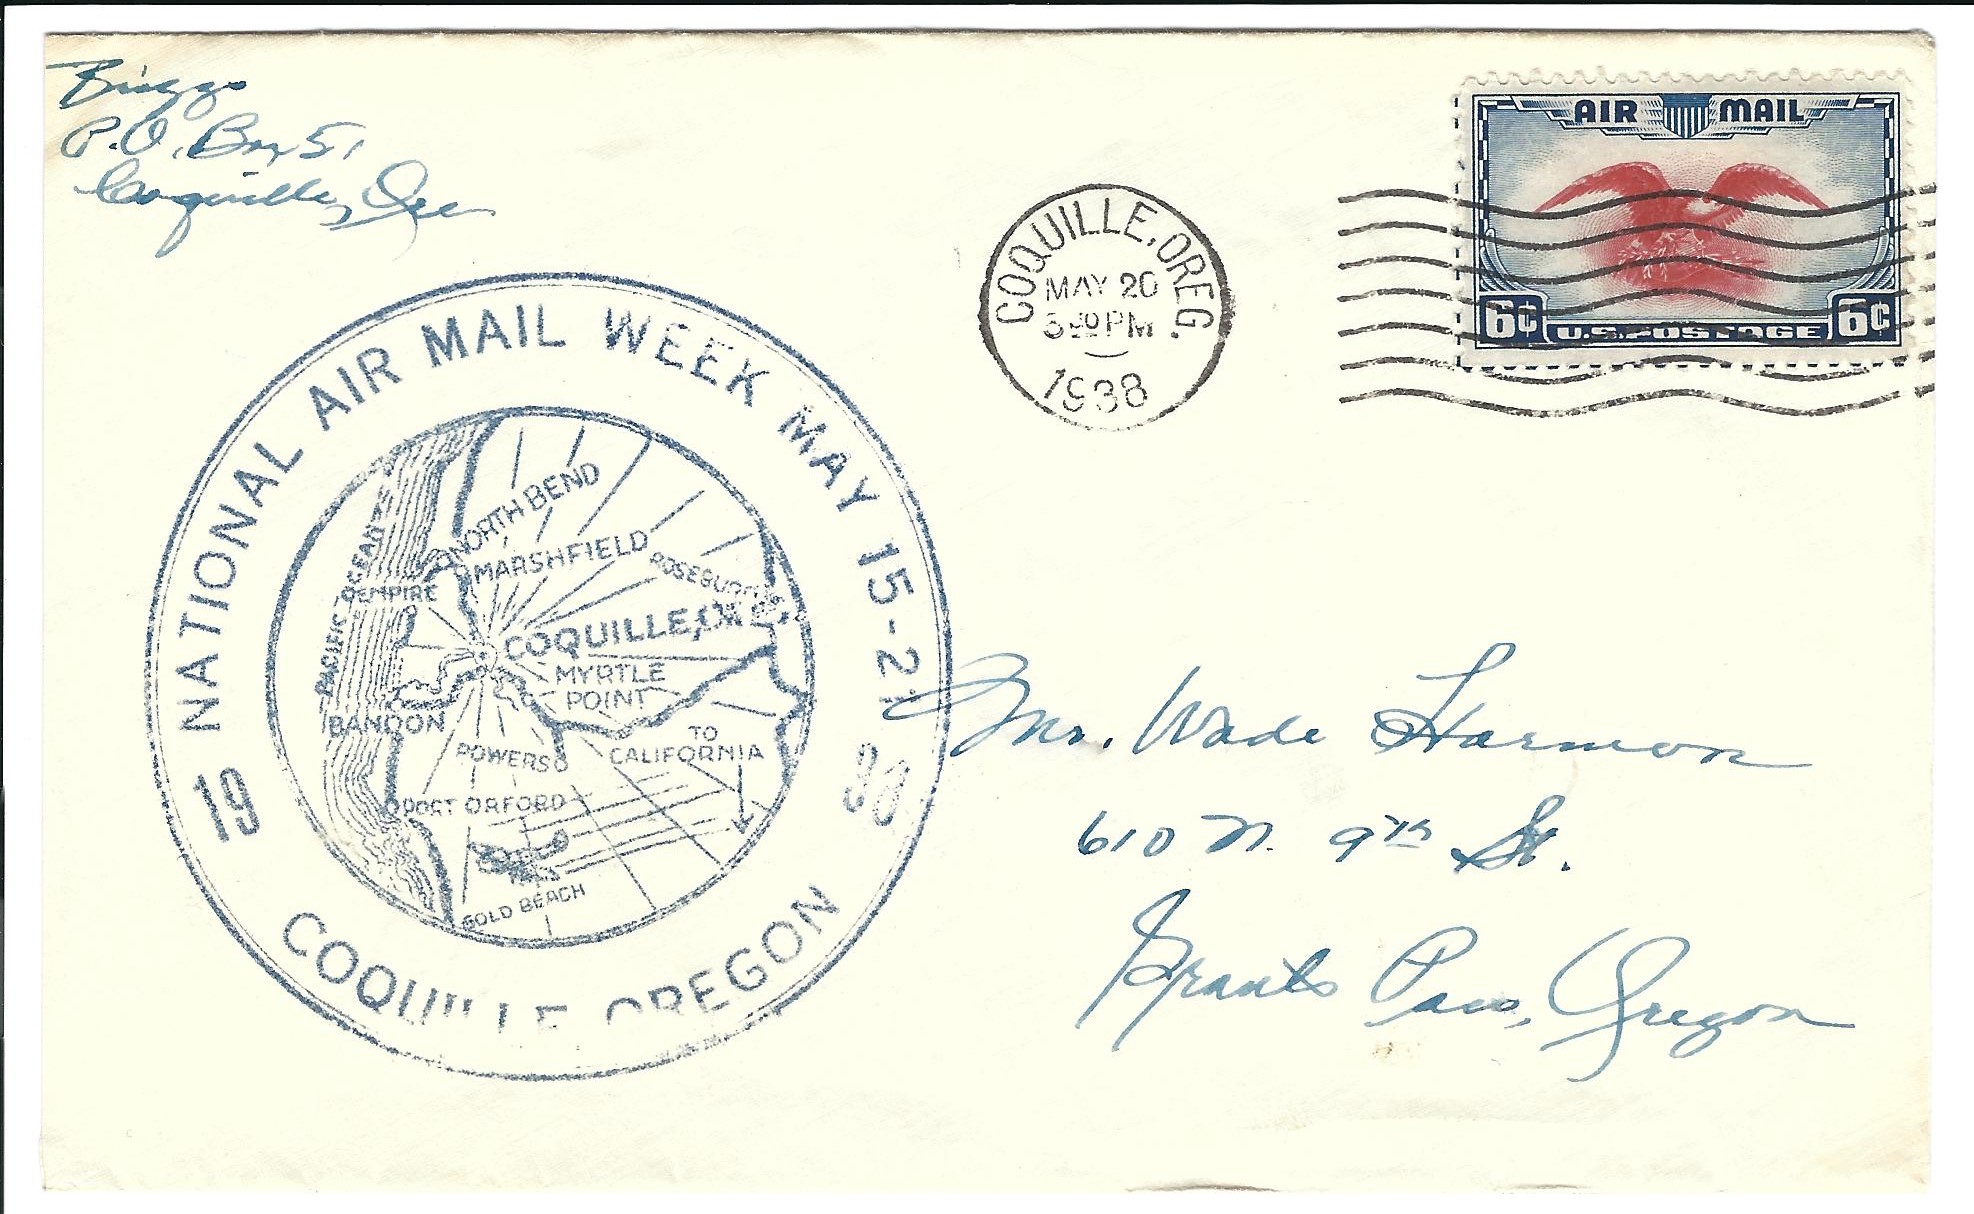 Briggs
P.O. Box 51
Coquille, Ore
AIR MAIL
6¢ U.S. POSTAGE 6¢
COQUILLE, OREG.
MAY 20
PM
1938
NATIONAL AIR MAIL WEEK MAY 15-21
1938
COQUILLE OREGON
PACIFIC OCEAN
NORTH BEND
MARSHFIELD
ROSEBURG
EMPIRE
COQUILLE, ORE.
MYRTLE
POINT
BANDON
TO
CALIFORNIA
POWERS
PORT ORFORD
GOLD BEACH
Mr. Wade Harmon
610 N. 9th St.
Grants Pass, Oregon